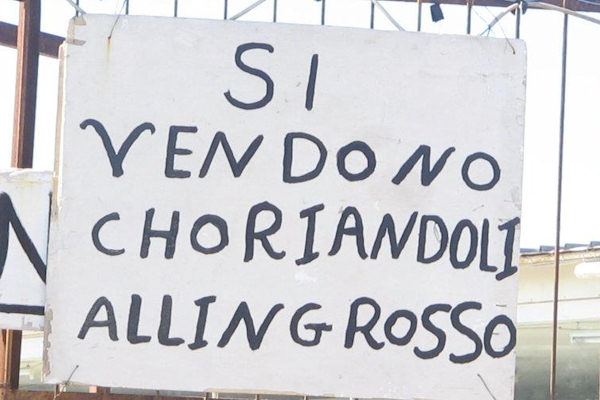 SI
VENDONO
CHORIANDOLI
ALLINGROSSO